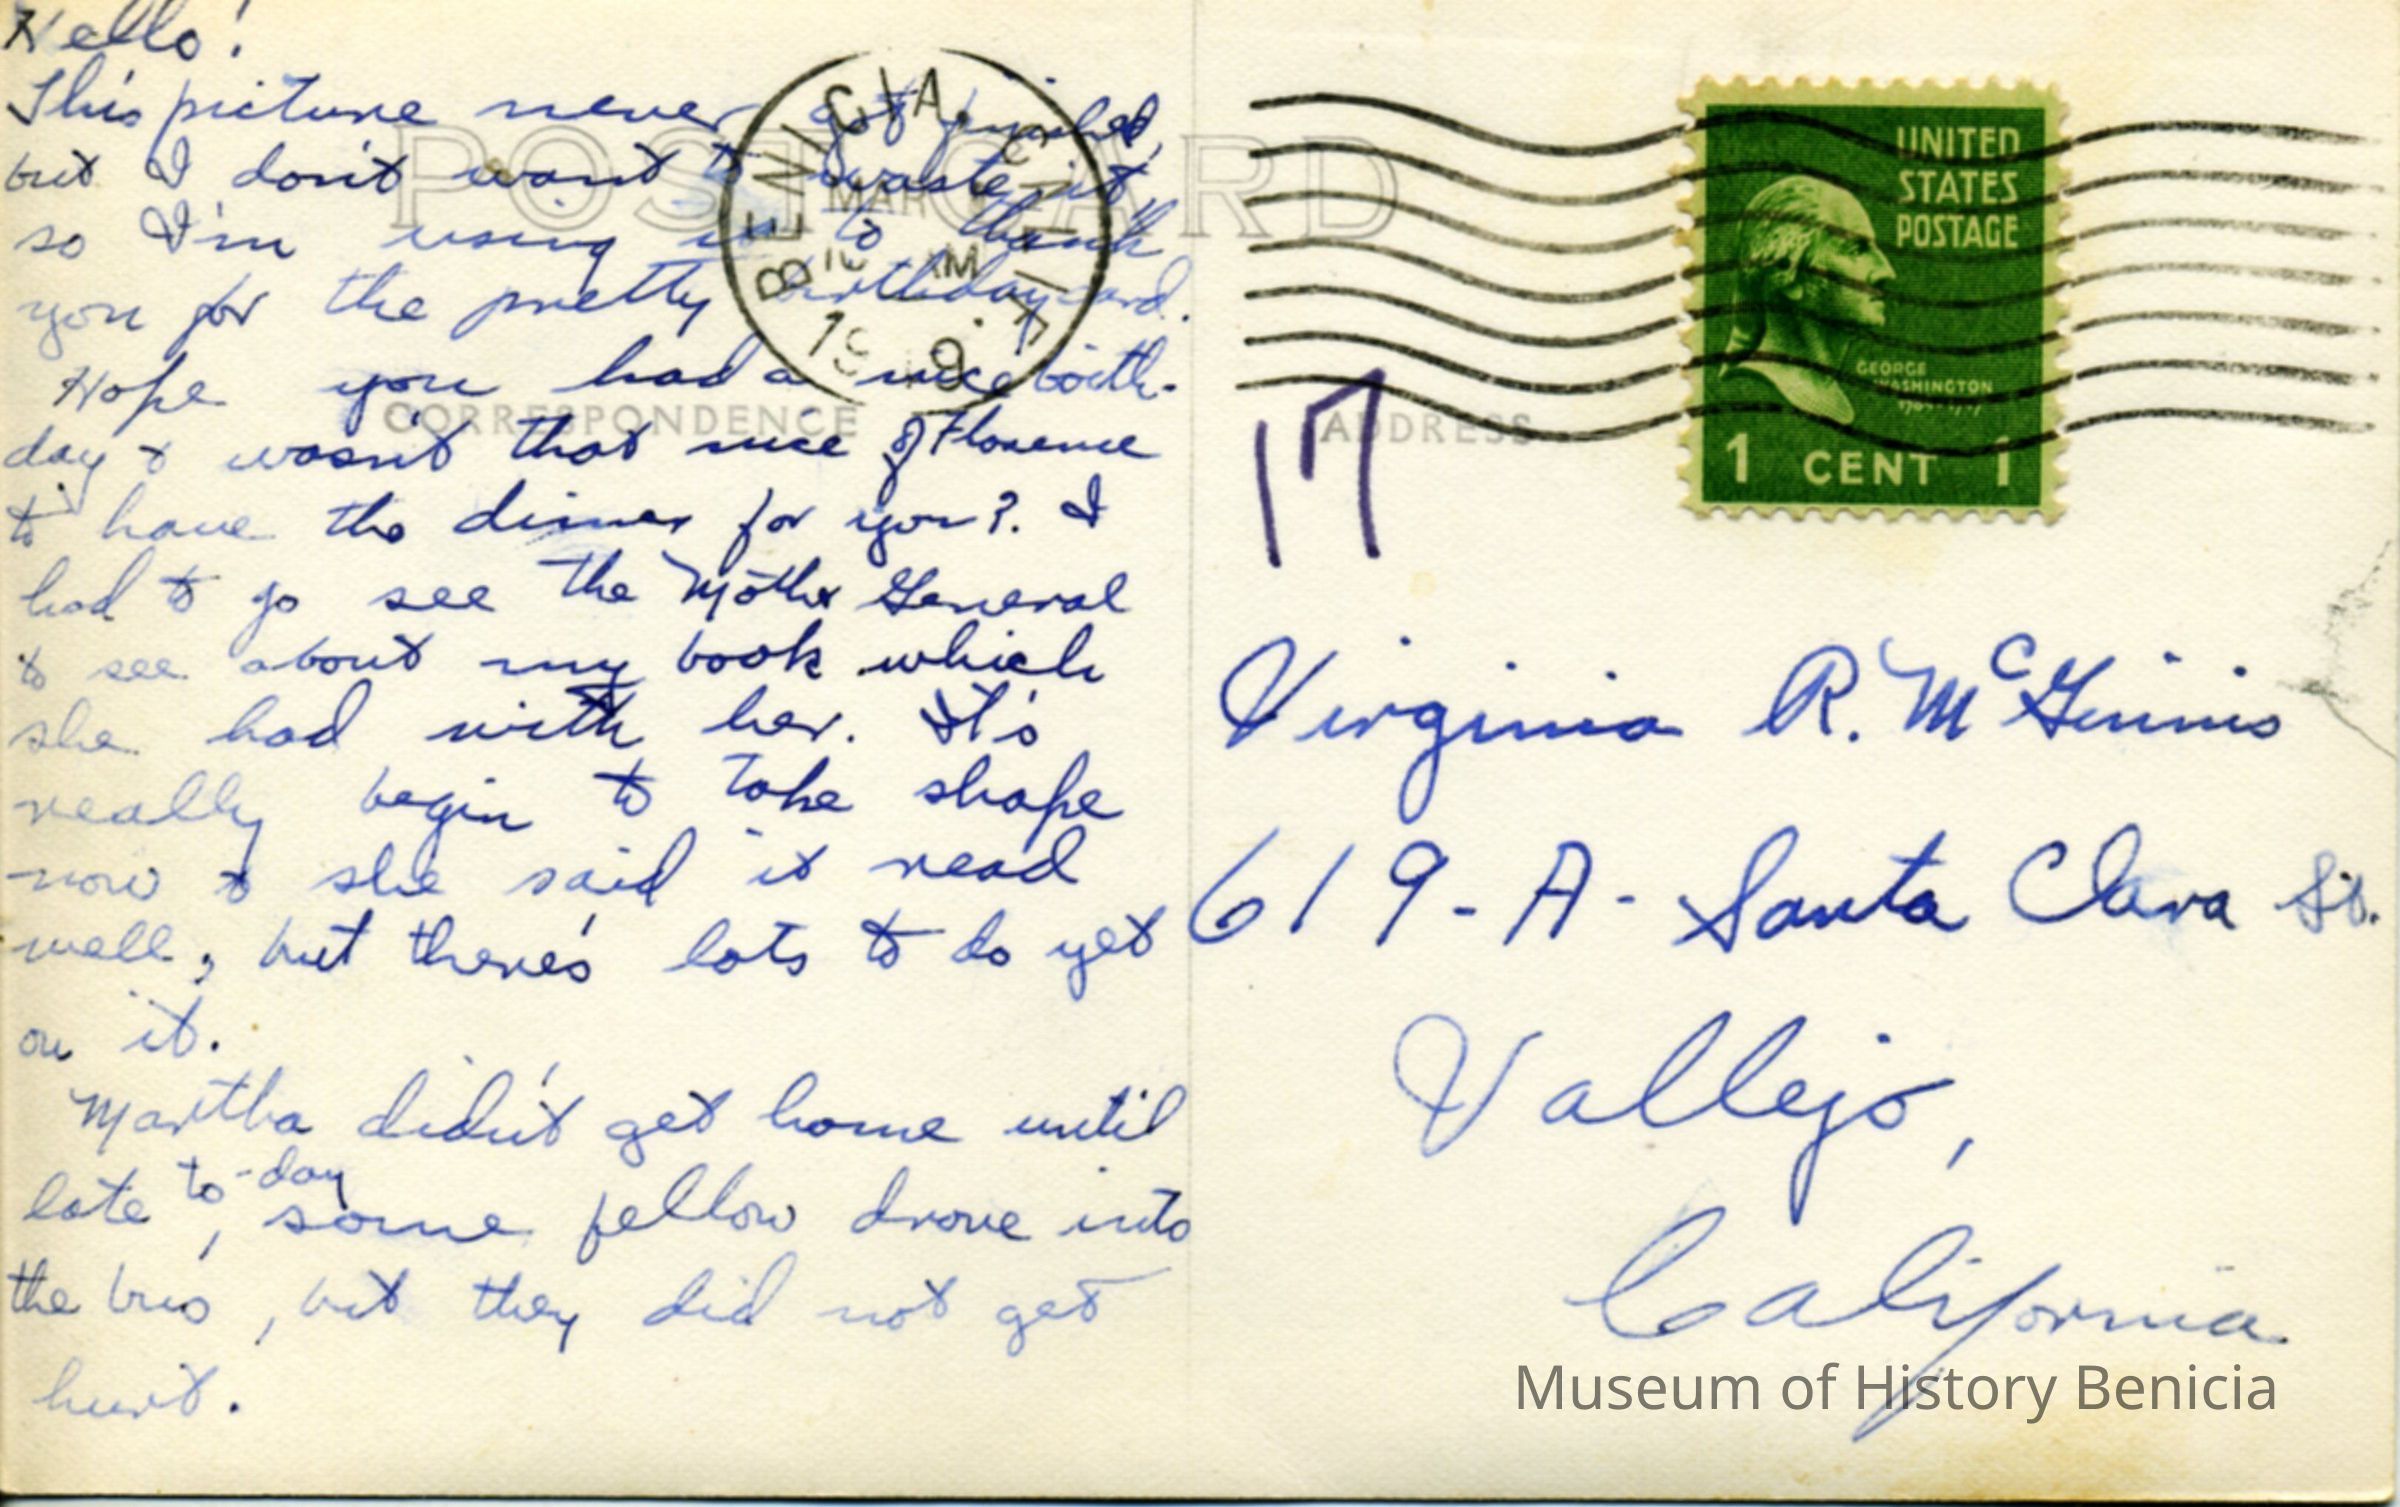 Hello!
This picture never got finished,
but I don't want to waste it
so I'm using it to thank
you for the pretty birthday card.
Hope you had a nice birth-
day & wasn't that nice of Florence
to have the dinner for you?. I
had to go see the Mother General
to see about my book which
she had with her. It's
really begin to take shape
now & she said it read
well, but there's lots to do yet
on it.
Martha didn't get home until
late to-day, some fellow drove into
the bus, but they did not get
hurt.
POST CARD
CORRESPONDENCE
ADDRESS
BENICIA, CALIF.
MAR
AM
19 9
17
UNITED
STATES
POSTAGE
GEORGE
WASHINGTON
1 CENT 1
Virginia R. McGinnis
619-A-Santa Clara St.
Vallejo,
California
Museum of History Benicia